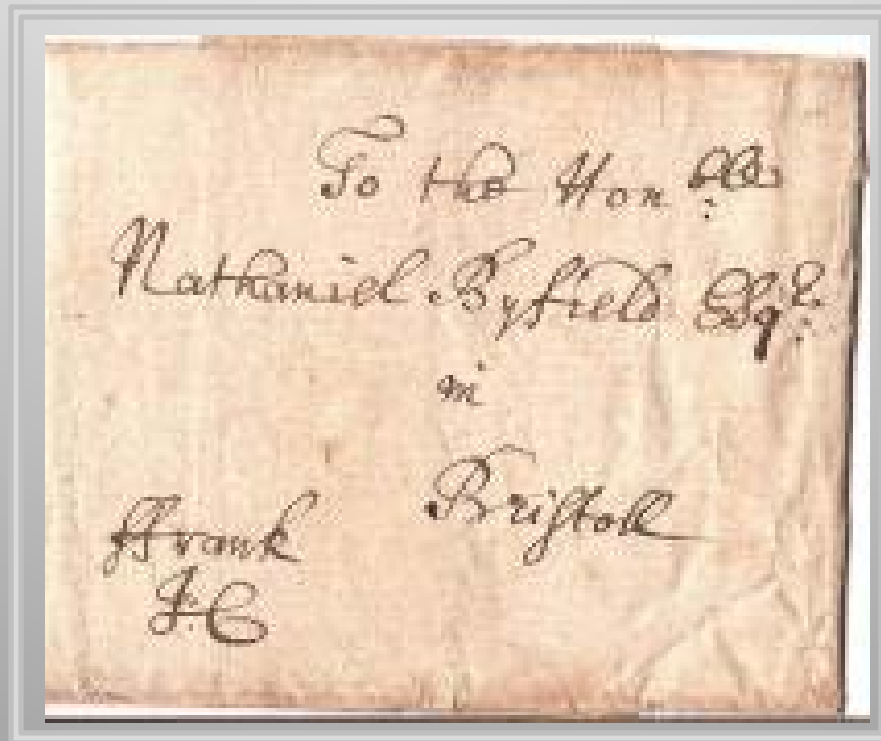 To the Hon ble
Nathaniel Byfield Esqr
in
Bristoll
ffrank
J: C